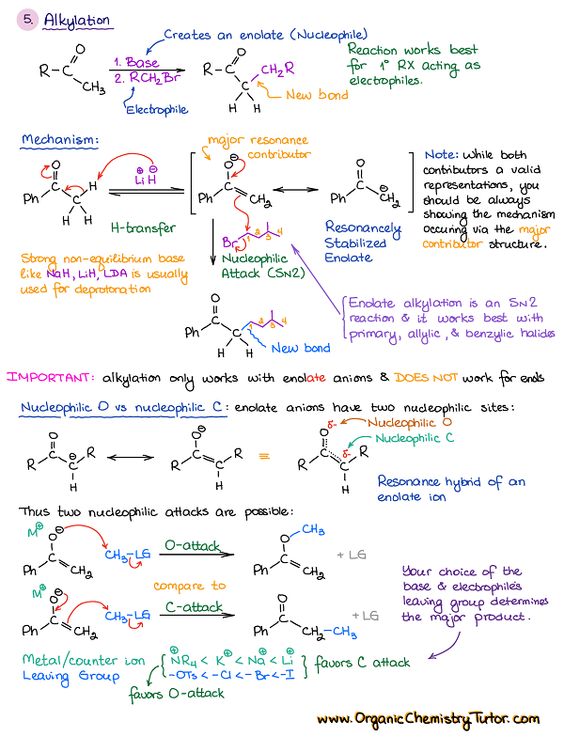 5. Alkylation
Creates an enolate (Nucleophile)
R-C
O
CH₃
1. Base
2. RCH₂Br
Electrophile
R-C
O
CH₂R
C
H H
New bond
Reaction works best
for 1° RX acting as
electrophiles.
Mechanism:
O
Ph
C
C
H
H H
Li⊕ H⊖
H-transfer
Strong non-equilibrium base
like NaH, LiH, LDA is usually
used for deprotoration
major resonance
contributor
O⊖
Ph
C
CH₂
O
Ph
C
CH₂⊖
Resonancely
Stabilized
Enolate
Note: While both
contributors a valid
representations, you
should be always
showing the mechanism
occuring via the major
contributor structure.
Br
1 2 3 4
Nucleophilic
Attack (SN2)
O
Ph
C
C
H H
1 2 3 4
New bond
Enolate alkylation is an SN2
reaction & it works best with
primary, allylic, & benzylic halides
IMPORTANT: alkylation only works with enolate anions & DOES NOT work for enols
Nucleophilic O vs nucleophilic C: enolate anions have two nucleophilic sites:
O
R C C⊖ R
H
O⊖
R C C R
H
≡
O δ-
R C C δ- R
H
Nucleophilic O
Nucleophilic C
Resonance hybrid of an
enolate ion
Thus two nucleophilic attacks are possible:
M⊕
O⊖
Ph C CH₂
CH₃-LG
O-attack
O CH₃
Ph C CH₂
+ LG
compare to
M⊕
O⊖
Ph C CH₂
CH₃-LG
C-attack
O
Ph C CH₂-CH₃
+ LG
Your choice of the
base & electrophile's
leaving group determines
the major product.
Metal/counter ion
Leaving Group
⊕NR₄ < K⊕ < Na⊕ < Li⊕
-OTs < -Cl < -Br < -I
favors C attack
favors O-attack
www.OrganicChemistryTutor.com